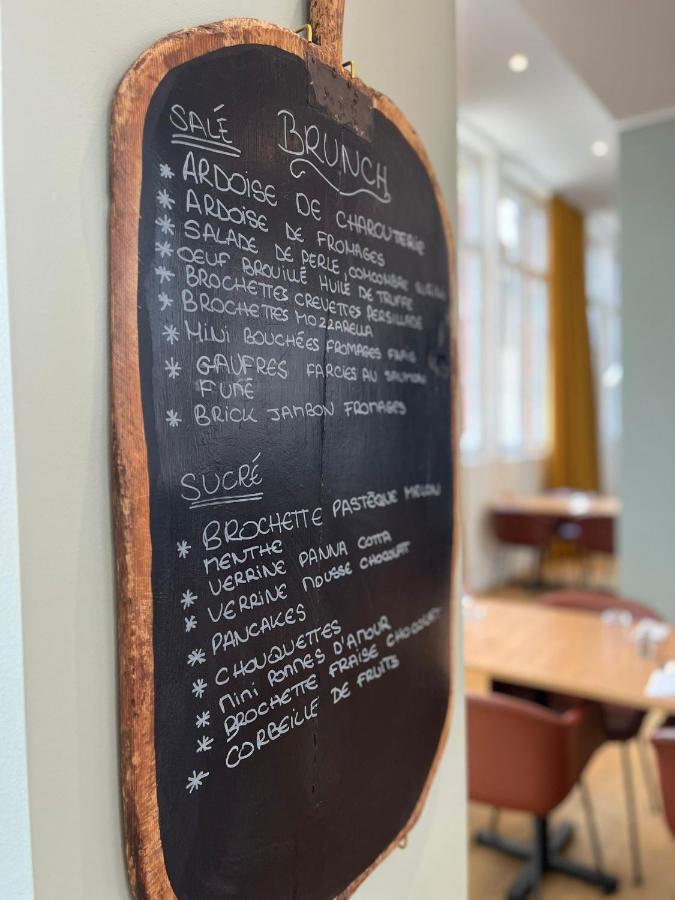 SALÉ
BRUNCH
* ARDOISE DE CHAROUTERIE
* ARDOISE DE FROMAGES
* SALADE DE PERLE, COMCOMBRE
* OEUF BROUILLÉ HUILE DE TRUFFE
* BROCHETTES CREVETTES PERSILLADE
* BROCHETTES MOZZARELLA
* MINI BOUCHÉES FROMAGES FRAIS
* GAUFRES FARCIES AU SAUMON
FUMÉ
* BRICK JAMBON FROMAGES
SUCRÉ
* BROCHETTE PASTÈQUE MELON
MENTHE
* VERRINE PANNA COTTA
* VERRINE MOUSSE CHOCOLAT
* PANCAKES
* CHOUQUETTES
* MINI POMMES D'AMOUR
* BROCHETTE FRAISE CHOCOLAT
* CORBEILLE DE FRUITS